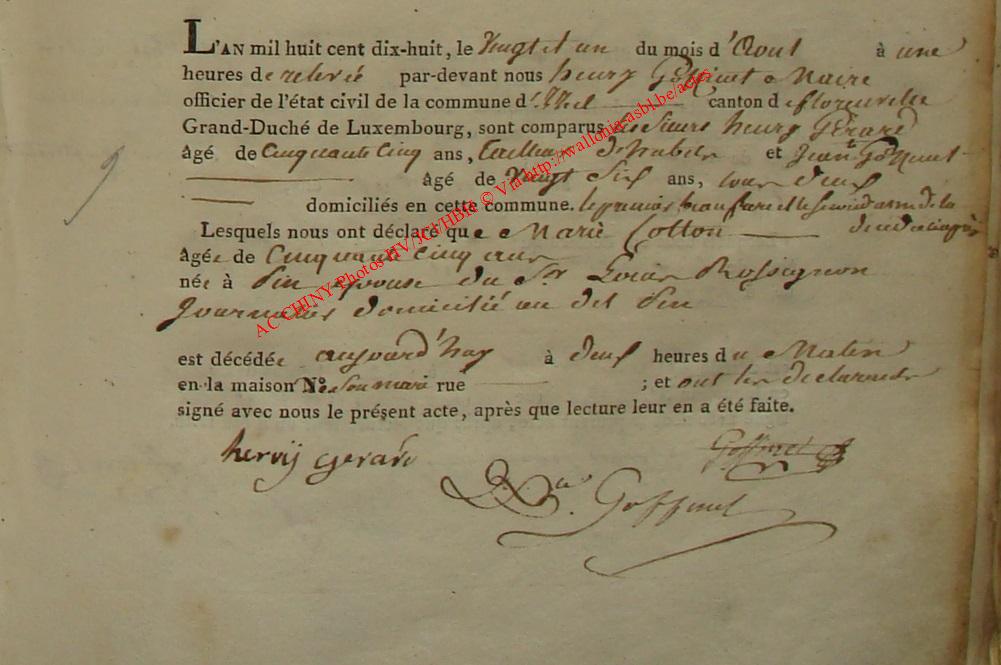 L'AN mil huit cent dix-huit, le vingt et un du mois d'Aout à une
heures de relevée par-devant nous henry Goffinet Maire
officier de l'état civil de la commune d' canton de florenville
Grand-Duché de Luxembourg, sont comparus les Sieurs henry Gérard
âgé de Cinquante Cinq ans, tailleur d'habits et Jean Bte Goffinet
âgé de vingt Six ans, tous deux
domiciliés en cette commune. le premier beau frere et le second ami de la
Lesquels nous ont déclaré que Marie Cotton denoncée
âgée de Cinquante cinq ans
née à Pin epouse du Sr. Louis Rossignon
Journalier domicilié au dit Pin
est décédée aujourd'huy à deux heures du Matin
en la maison N° de son mari rue ; et ont les declarants
signé avec nous le présent acte, après que lecture leur en a été faite.
henrij gerard Goffinet
Goffinet
9
AC-CHINY-Photos HV/JCl/HBH © Via http://wallonia-asbl.be/actes